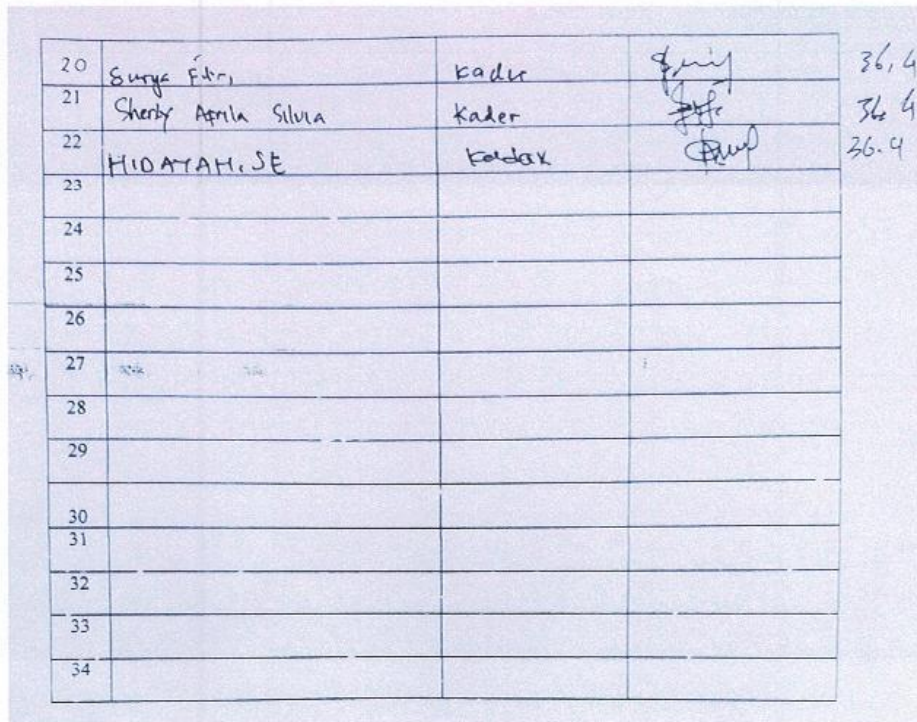 20 Surya Fitri, Kader 36,4
21 Sherly Aprila Silvia Kader 36,4
22 HIDAYAH, SE 36.4
23
24
25
26
27
28
29
30
31
32
33
34